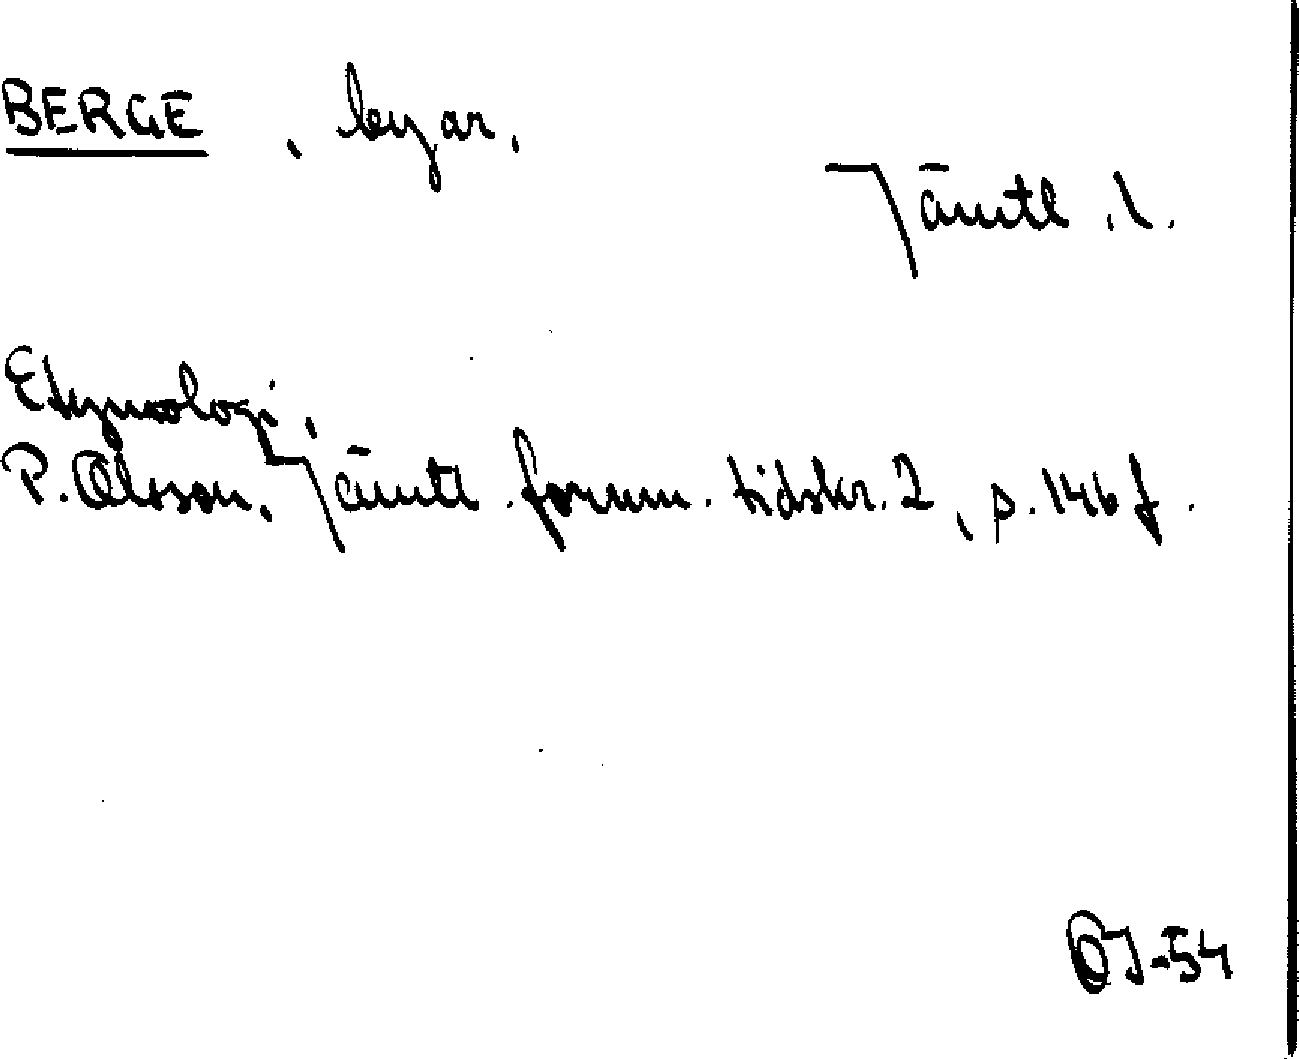 BERGE, byar.
Jämtl. l.
Etymologi.
P. Olsson, Jämtl. fornm. tidskr. 2, s. 146 f.
OJ-54